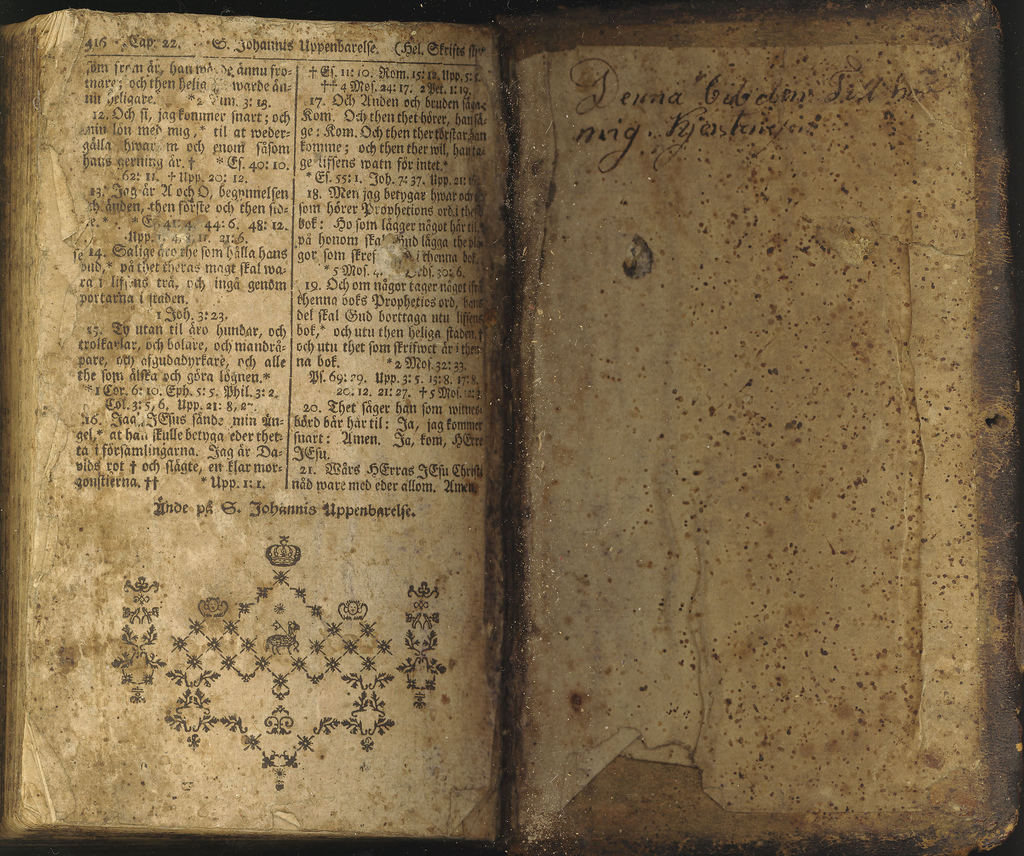 416 Cap. 22. S. Johannis Uppenbarelse. (Hel. Skrifts
som from är, han warde ännu fro-
mare; och then helig warde än-
nu heligare. *2 Tim. 3: 13.
12. Och si, jag kommer snart; och
min lön med mig, * til at weder-
gälla hwar m och enom såsom
hans gerning är. † * Es. 40: 10.
62: 11. † Upp. 20: 12.
13. Jag är A och O, begynnelsen
och änden, then förste och then sid-
ste. * * Es. 41: 4. 44: 6. 48: 12.
Upp. 1: 4, 8, 11. 21: 6.
14. Salige äro the som hålla hans
bud, * på thet theras magt skal wa-
ra i lifsens trä, och ingå genom
portarna i staden.
1 Joh. 3: 23.
15. Ty utan til äro hundar, och
trolkarlar, och bolare, och mandrå-
pare, och afgudadyrkare, och alle
the som älska och göra lögnen.*
*1 Cor. 6: 10. Eph. 5: 5. Phil. 3: 2.
Col. 3: 5, 6. Upp. 21: 8, 27.
16. Jag JEsus sände min Än-
gel, * at han skulle betyga eder thet-
ta i församlingarna. Jag är Da-
vids rot † och slägte, en klar mor-
gonstierna. †† * Upp. 1: 1.
† Es. 11: 10. Rom. 15: 12. Upp. 5: 5.
†† 4 Mos. 24: 17. 2 Pet. 1: 19.
17. Och Anden och bruden säga:
Kom. Och then thet hörer, han sä-
ge: Kom. Och then ther törstar, han
komme; och then ther wil, han ta-
ge lifsens watn för intet.*
* Es. 55: 1. Joh. 7: 37. Upp. 21:
18. Men jag betygar hwar och
som hörer Prophetions ord i the
bok: Ho som lägger något här til,
på honom skal Gud lägga the pla-
gor som skref i thenna bok.
* 5 Mos. 4. Ords. 30: 6.
19. Och om någor tager något ifrå
thenna boks Prophetios ord, hans
del skal Gud borttaga utu lifsens
bok, * och utu then heliga staden, †
och utu thet som skrifwet är i then-
na bok. * 2 Mos. 32: 33.
Ps. 69: 29. Upp. 3: 5. 13: 8. 17: 8.
20. 12. 21: 27. † 5 Mos.
20. Thet säger han som witnes-
börd bär här til: Ja, jag kommer
snart: Amen. Ja, kom, HErre
JEsu.
21. Wårs HErras JEsu Christi
nåd ware med eder allom. Amen.
Ände på S. Johannis Uppenbarelse.
Denna
mig